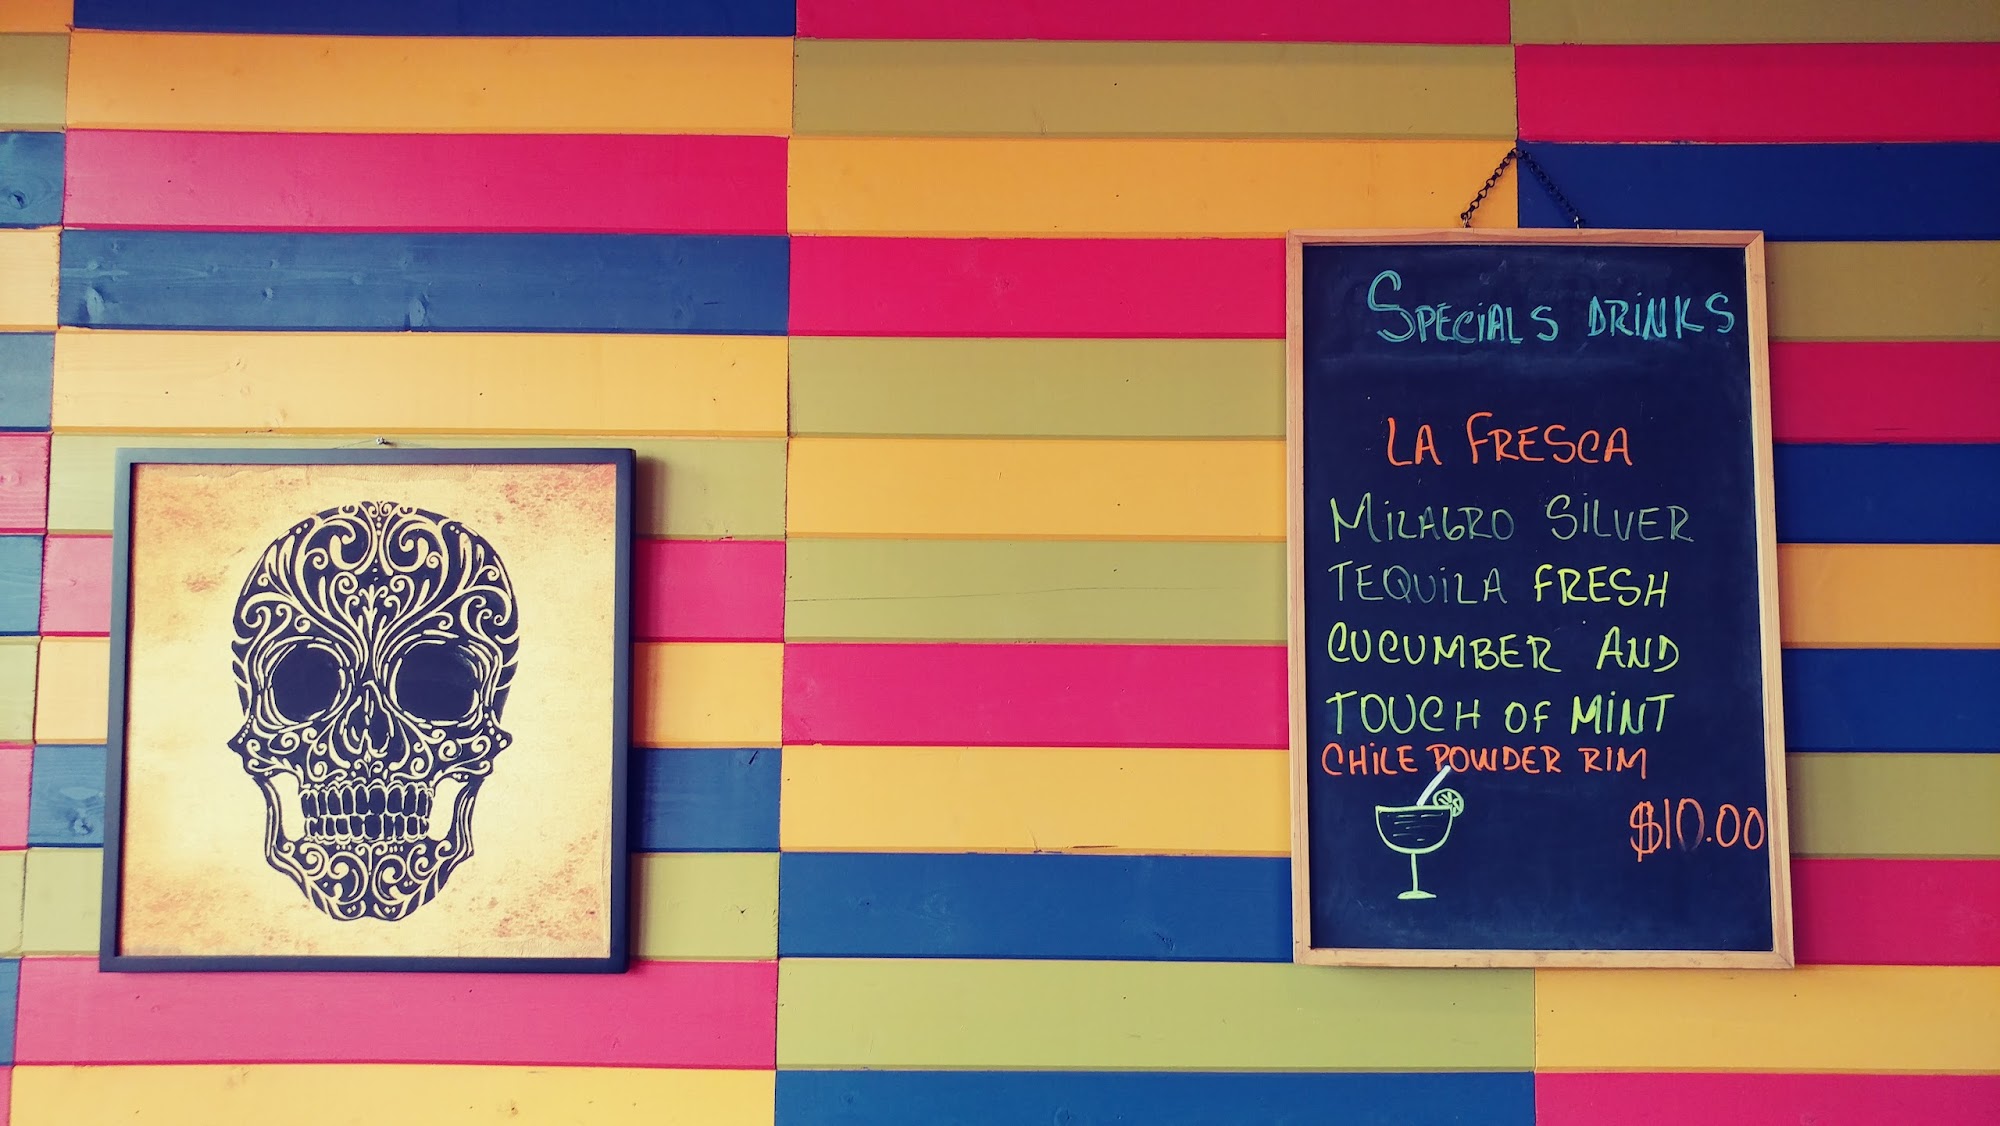 SPECIALS DRINKS
LA FRESCA
MILAGRO SILVER
TEQUILA FRESH
CUCUMBER AND
TOUCH OF MINT
CHILE POWDER RIM
$10.00